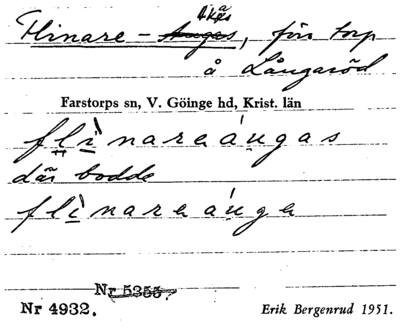 Flinare-Akas, förr torp
å Långaröd
Farstorps sn, V. Göinge hd, Krist. län
flìnareáu̯gas
där bodde
flìnareáu̯ga
Nr 5355.
Nr 4932. Erik Bergenrud 1951.